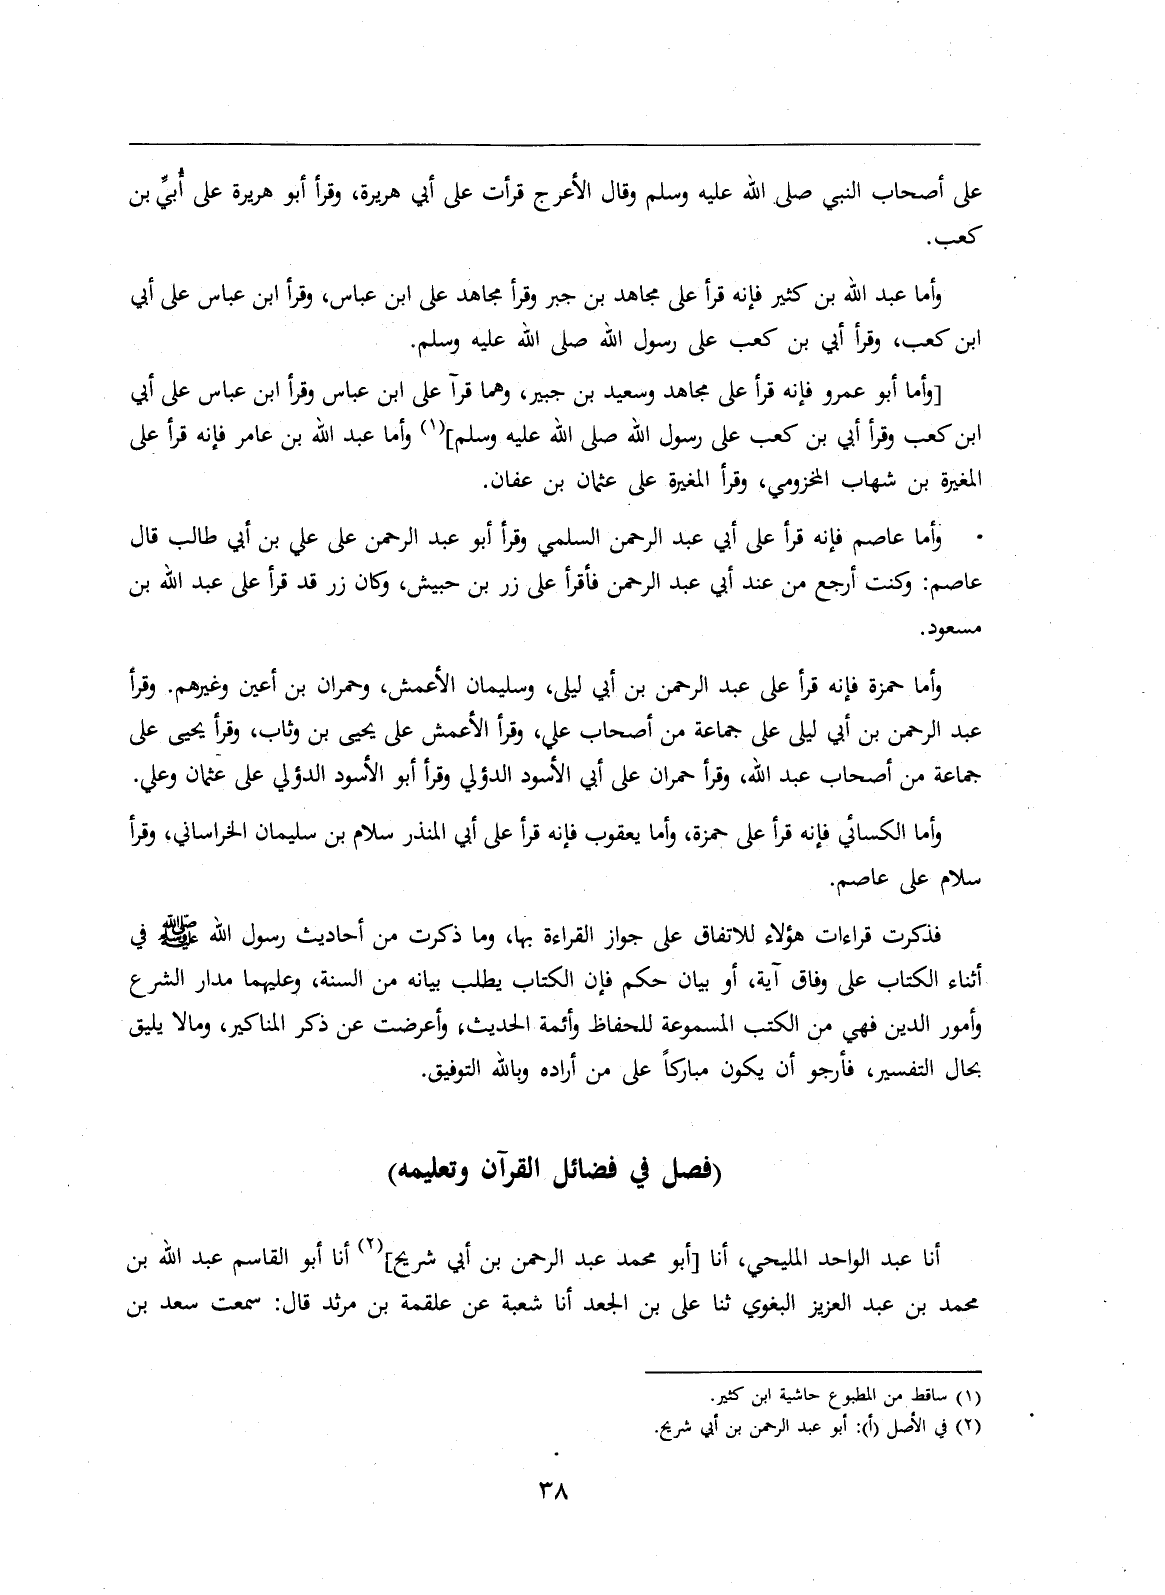 على أصحاب النبي صلى الله عليه وسلم وقال الأعرج قرأت على أبي هريرة، وقرأ أبو هريرة على أُبيِّ بن
كعب.
وأما عبد الله بن كثير فإنه قرأ على مجاهد بن جبر وقرأ مجاهد على ابن عباس، وقرأ ابن عباس على أبي
ابن كعب، وقرأ أبي بن كعب على رسول الله صلى الله عليه وسلم.
[وأما أبو عمرو فإنه قرأ على مجاهد وسعيد بن جبير، وهما قرآ على ابن عباس وقرأ ابن عباس على أبي
ابن كعب وقرأ أبي بن كعب على رسول الله صلى الله عليه وسلم](١) وأما عبد الله بن عامر فإنه قرأ على
المغيرة بن شهاب المخزومي، وقرأ المغيرة على عثمان بن عفان.
وأما عاصم فإنه قرأ على أبي عبد الرحمن السلمي وقرأ أبو عبد الرحمن على علي بن أبي طالب قال
عاصم: وكنت أرجع من عند أبي عبد الرحمن فأقرأ على زر بن حبيش، وكان زر قد قرأ على عبد الله بن
مسعود.
وأما حمزة فإنه قرأ على عبد الرحمن بن أبي ليلى، وسليمان الأعمش، وحمران بن أعين وغيرهم. وقرأ
عبد الرحمن بن أبي ليلى على جماعة من أصحاب علي، وقرأ الأعمش على يحيى بن وثاب، وقرأ يحيى على
جماعة من أصحاب عبد الله، وقرأ حمران على أبي الأسود الدؤلي وقرأ أبو الأسود الدؤلي على عثمان وعلي.
وأما الكسائي فإنه قرأ على حمزة، وأما يعقوب فإنه قرأ على أبي المنذر سلام بن سليمان الخراساني، وقرأ
سلام على عاصم.
فذكرت قراءات هؤلاء للاتفاق على جواز القراءة بها، وما ذكرت من أحاديث رسول الله ﷺ في
أثناء الكتاب على وفاق آية، أو بيان حكم فإن الكتاب يطلب بيانه من السنة، وعليهما مدار الشرع
وأمور الدين فهي من الكتب المسموعة للحفاظ وأئمة الحديث، وأعرضت عن ذكر المناكير، ومالا يليق
بحال التفسير، فأرجو أن يكون مباركاً على من أراده وبالله التوفيق.
(فصل في فضائل القرآن وتعليمه)
أنا عبد الواحد المليحي، أنا [أبو محمد عبد الرحمن بن أبي شريح](٢) أنا أبو القاسم عبد الله بن
محمد بن عبد العزيز البغوي ثنا على بن الجعد أنا شعبة عن علقمة بن مرثد قال: سمعت سعد بن
(١) ساقط من المطبوع حاشية ابن كثير.
(٢) في الأصل (أ): أبو عبد الرحمن بن أبي شريح.
٣٨